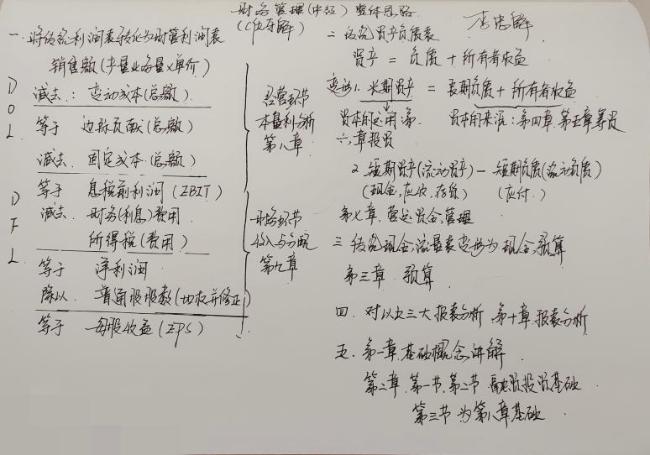 财务管理(中级)整体思路
一、将传统利润表转化为财管利润表
销售额(产量业务量×单价)
减去：变动成本(总额)
等于 边际贡献(总额)
减去、固定成本(总额)
等于 息税前利润(EBIT)
减去、财务(利息)费用
所得税(费用)
等于 净利润
除以、普通股股数
等于 每股收益(EPS)
DOL
DFL
经营环节
本量利分析
第八章
财务环节
收入与分配
第九章
二、传统资产负债表
资产 = 负债 + 所有者权益
变形1. 长期资产 = 长期负债 + 所有者权益
资本的运用：第六章投资
资本的来源：第四章、第五章筹资
2. 短期资产(流动资产) - 短期负债(流动负债)
(现金,应收,存货) (应付)
第七章、营运资金管理
三、传统现金流量表变形为现金预算
第三章、预算
四、对以上三大报表分析、第十章、报表分析
五、第一章、基础概念讲解
第二章、第一节、第二节 融资投资基础
第三节为第八章基础